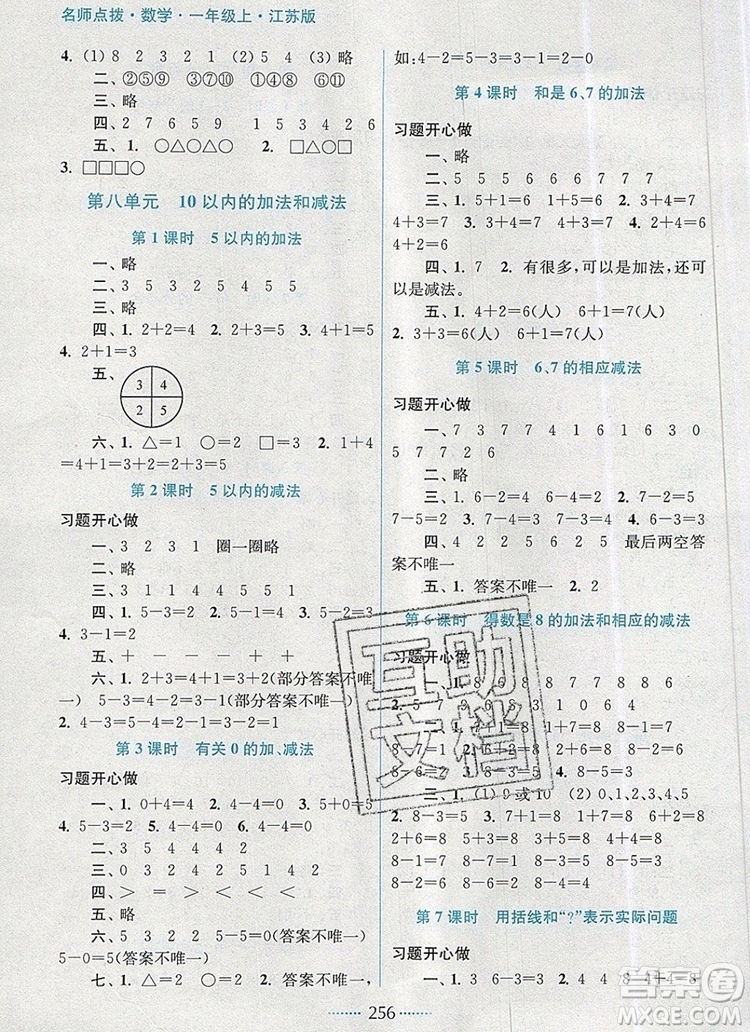 名师点拨·数学·一年级上·江苏版
4. (1) 8 2 9 1 3 2 (2) 5 4 (3) 略
二、②⑤⑨ ③⑦⑩ ①④⑧ ⑥⑪
三、略
四、2 7 6 5 9 6 1 5 3 4 2 6
五、1. ○△○△○ 2. △□△□
3. □□□○
第八单元 10 以内的加法和减法
第 1 课时 5 以内的加法
一、略
二、3 5 3 2 5 4 5 5
三、略
四、1. 2+2=4 2. 2+3=5 3. 4+1=5
4. 2+1=3
五、
3 4
2 5
六、1. △=1 ○=2 □=3 2. 1+4
=4+1=3+2=2+3=5
第 2 课时 5 以内的减法
习题开心做
一、3 2 3 1 圈一圈略
二、略
三、3 1 1 1 4 4 5 5 1
四、1. 5-3=2 2. 5-1=4 3. 5-4=1
4. 3-1=2
五、+ - - + - +
六、1. 2+3=5 1+2=3(部分答案不唯
一) 5-3=2 3-2=1(部分答案不唯一)
2. 4-1=3 5-2=3 4-3=1
第 3 课时 有关 0 的加、减法
习题开心做
一、1. 0+4=4 2. 4-4=0 3. 5+0=5
4. 5-3=2 5. 4-0=4 6. 4-4=0
二、略
三、0 3 2 4 2 5 1 3 4 2
四、> = > < < <
五、略
六、0 5 3 2 2 5-5=0(答案不唯一)
5-0=5(答案不唯一)
七、1. △=2 ○=0 2. 答案不唯一
如:4-2=5-3 0+5=5-0
第 4 课时 和是 6、7 的加法
习题开心做
一、略
二、5 5 5 6 6 6 7 7 7
三、1. 5+1=6 1+5=6 2. 3+4=7
4+3=7 3. 5+2=7 2+5=7 4. 2+4=6
4+2=6
四、1. 7 2. 有很多,可以是加法,还可
以是减法。
五、1. 4+2=6(人) 6+1=7(人)
2. 3+3=6(人) 6+1=7(人)
第 5 课时 6、7 的相应减法
习题开心做
一、7 3 7 7 4 1 6 1 6 3 0
5 7 7 2 6
二、略
三、1. 6-2=4 6-4=2 2. 7-2=5
7-5=2 3. 7-4=3 7-3=4 4. 6-3=3
四、4 2 2 5 6 2 5 最后两空答
案不唯一
五、1. 答案不唯一 2. 2
第 6 课时 得数是 8 的加法和相应的减法
习题开心做
8-7=1
8-6=2 8-2=6 3. 8-5=3
(2)0、1、2、
2+6=8 5+3=8 3+5=8
8-1=7 8-2=6 8-3=5
8-4=4 8-5=3 8-6=2
第 7 课时 用括线和“?”表示实际问题
习题开心做
256
互助
文档
答案圈
MXQE.COM